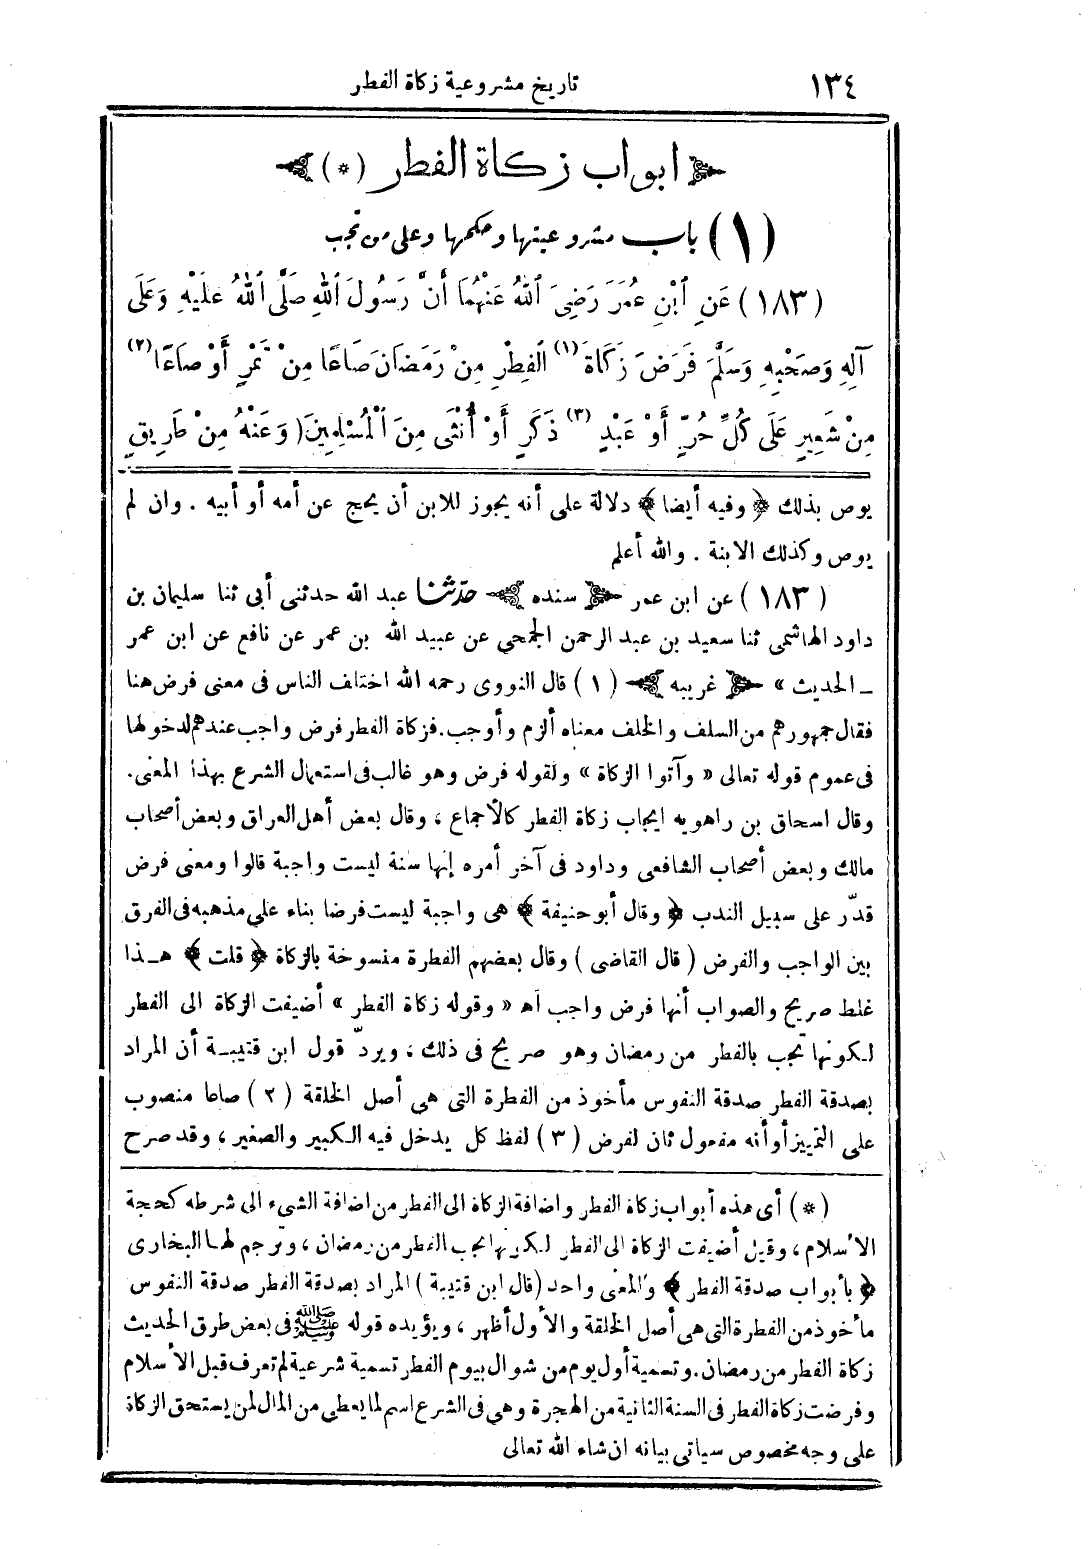 ١٣٤ تاريخ مشروعية زكاة الفطر
ابواب زكاة الفطر (*)
(١) باب مشروعيتها وحكمها وعلى من تجب
(١٨٣) عَنِ ابْنِ عُمَرَ رَضِيَ اللهُ عَنْهُمَا أَنَّ رَسُولَ اللهِ صَلَّى اللهُ عَلَيْهِ وَعَلَى
آلِهِ وَصَحْبِهِ وَسَلَّمَ فَرَضَ زَكَاةَ (١) الْفِطْرِ مِنْ رَمَضَانَ صَاعًا مِنْ تَمْرٍ أَوْ صَاعًا (٢)
مِنْ شَعِيرٍ عَلَى كُلِّ حُرٍّ أَوْ عَبْدٍ (٣) ذَكَرٍ أَوْ أُنْثَى مِنَ الْمُسْلِمِينَ (وَعَنْهُ مِنْ طَرِيقٍ
يوص بذلك ﴿ وفيه أيضا ﴾ دلالة على أنه يجوز للابن أن يحج عن أمه أو أبيه . وان لم
يوص وكذلك الابنة . والله أعلم
(١٨٣) عن ابن عمر سنده حدّثنا عبد الله حدثنى أبى ثنا سليمان بن
داود الهاشمى ثنا سعيد بن عبد الرحمن الجمحي عن عبيد الله بن عمر عن نافع عن ابن عمر
ـ الحديث » غريبه (١) قال النووى رحمه الله اختلف الناس فى معنى فرض هنا
فقال جمهورهم من السلف والخلف معناه ألزم وأوجب. فزكاة الفطر فرض واجب عندهم لدخولها
فى عموم قوله تعالى « وآتوا الزكاة » ولقوله فرض وهو غالب فى استعمال الشرع بهذا المعنى.
وقال اسحاق بن راهويه ايجاب زكاة الفطر كالأجماع ، وقال بعض أهل العراق وبعض أصحاب
مالك وبعض أصحاب الشافعى وداود فى آخر أمره إنها سنة ليست واجبة قالوا ومعنى فرض
قدّر على سبيل الندب ﴿ وقال أبو حنيفة ﴾ هى واجبة ليست فرضا بناء على مذهبه فى الفرق
بين الواجب والفرض ( قال القاضى ) وقال بعضهم الفطرة منسوخة بالزكاة ﴿ قلت ﴾ هـذا
غلط صريح والصواب أنها فرض واجب اه « وقوله زكاة الفطر » أضيفت الزكاة الى الفطر
لكونها تجب بالفطر من رمضان وهو صريح فى ذلك ، ويردّ قول ابن قتيبـة أن المراد
بصدقة الفطر صدقة النفوس مأخوذ من الفطرة التى هى أصل الخلقة (٢) صاعا منصوب
على التمييز أو أنه مفعول ثان لفرض (٣) لفظ كل يدخل فيه الكبير والصغير ، وقد صرح
(*) أى هذه أبواب زكاة الفطر واضافة الزكاة الى الفطر من اضافة الشىء الى شرطه كحجة
الأسلام ، وقيل أضيفت الزكاة الى الفطر لكونها تجب بالفطر من رمضان ، وترجم لهـا البخارى
﴿ بأبواب صدقة الفطر ﴾ والمعنى واحد (قال ابن قتيبة) المراد بصدقة الفطر صدقة النفوس
مأخوذ من الفطرة التى هى أصل الخلقة والأول أظهر ، ويؤيده قوله ﷺ فى بعض طرق الحديث
زكاة الفطر من رمضان. وتسمية أول يوم من شوال بيوم الفطر تسمية شرعية لم تعرف قبل الأسلام
وفرضت زكاة الفطر فى السنة الثانية من الهجرة وهى فى الشرع اسم لما يعطى من المال لمن يستحق الزكاة
على وجه مخصوص سيأتى بيانه ان شاء الله تعالى